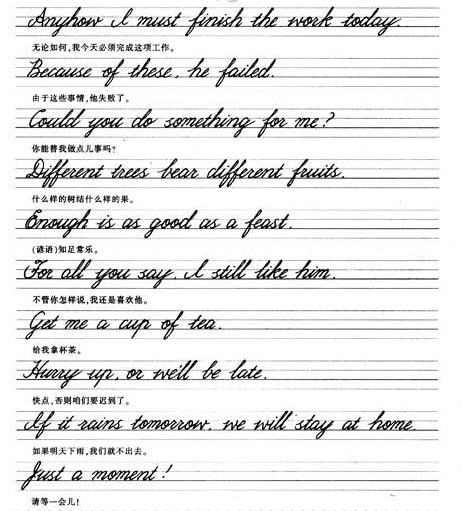 Anyhow I must finish the work today.
无论如何,我今天必须完成这项工作。
Because of these, he failed.
由于这些事情,他失败了。
Could you do something for me?
你能替我做点儿事吗?
Different trees bear different fruits.
什么样的树结什么样的果。
Enough is as good as a feast.
(谚语)知足常乐。
For all you say, I still like him.
不管你怎样说,我还是喜欢他。
Get me a cup of tea.
给我拿杯茶。
Hurry up, or we'll be late.
快点,否则咱们要迟到了。
If it rains tomorrow, we will stay at home.
如果明天下雨,我们就不出去。
Just a moment!
请等一会儿!